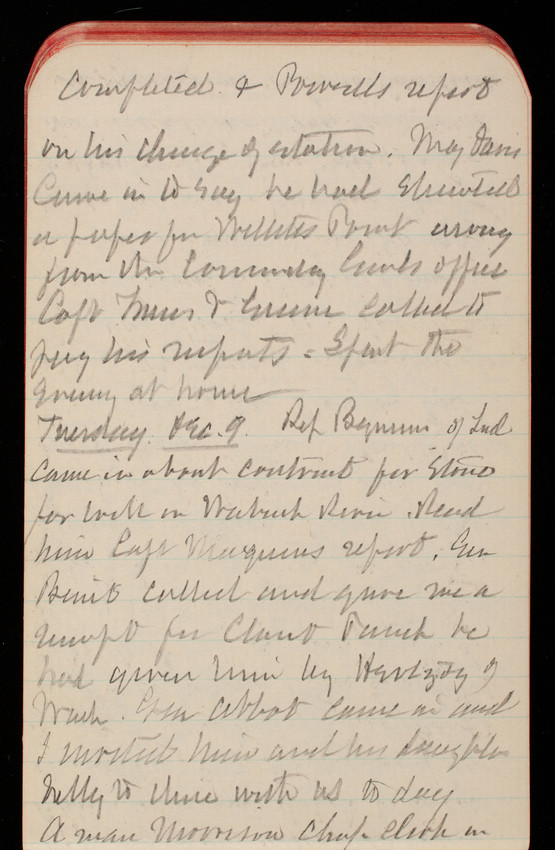 completed & Powells report
on his change of station. Maj Davis
Came in to say he had
a paper for Willets Point away
from the Commdg Genls office
Capt & Greene called to
pay his respects - Spent the
Evening at home
Tuesday Dec. 9. Rep Bynum of Ind
came in about contract for stone
for work on Wabash River. Read
him Capt report. Gen
Benet called and gave me a
receipt for Claret Punch he
had given him by of
Wash. Genl Abbot came in and
I invited him and his daughter
Nelly to dine with us to day
A man Morrison chf clerk in